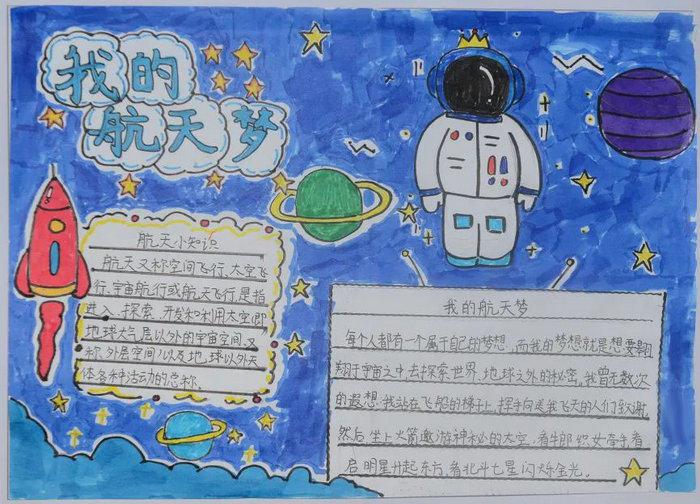 我的
航天梦
航天小知识
航天又称空间飞行、太空飞
行、宇宙航行或航天飞行,是指
进入、探索、开发和利用太空(即
地球大气层以外的宇宙空间,又
称外层空间)以及地球以外天
体各种活动的总称.
我的航天梦
每个人都有一个属于自己的梦想,而我的梦想就是想要翱
翔于宇宙之中,去探索世界、地球之外的秘密,我曾无数次
的遐想,我站在飞船的梯子上,挥手向送我飞天的人们致谢,
然后,坐上火箭遨游神秘的太空,看牛郎织女牵手看
启明星升起东方,看北斗七星闪烁金光.